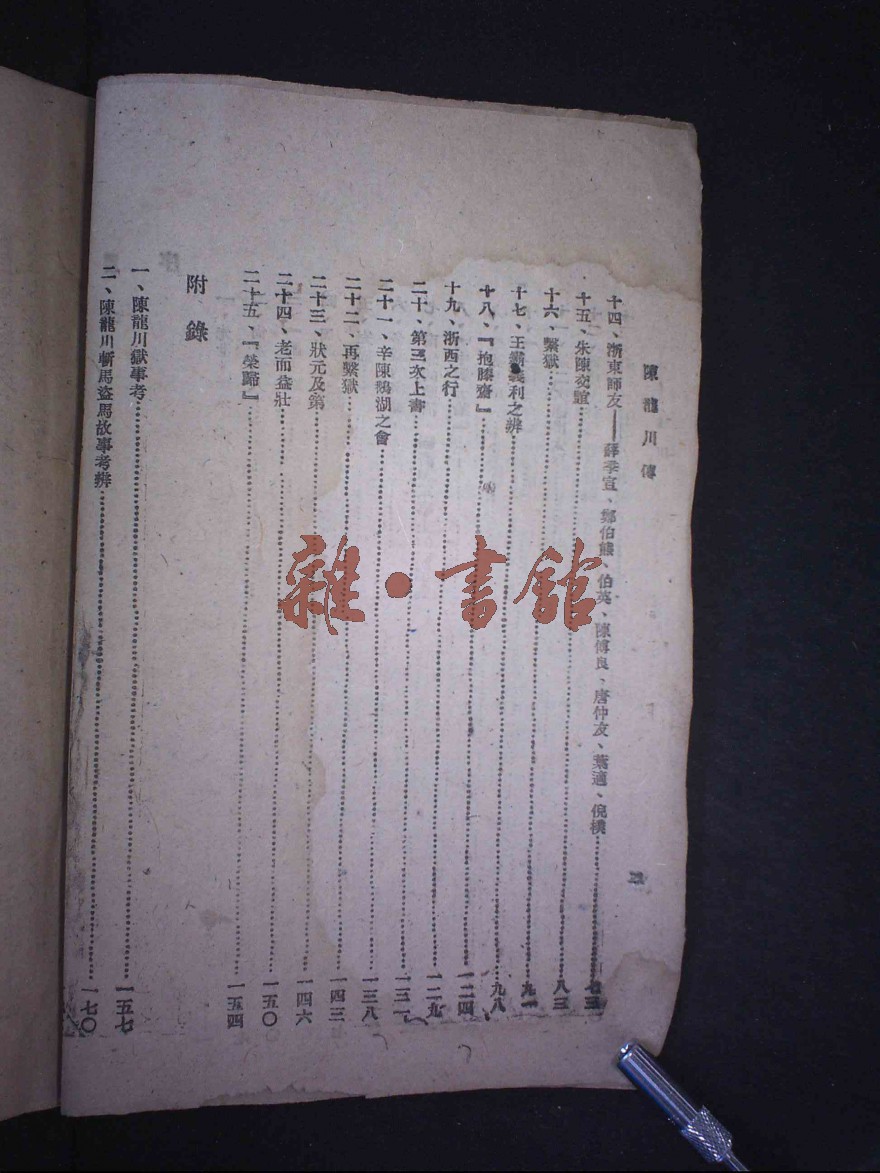 陳龍川傳
十四、浙東師友——薛季宣、鄭伯熊、伯英、陳傅良、唐仲友、葉適、倪樸……七三
十五、朱陳交誼……八三
十六、繫獄……九一
十七、王霸義利之辨……九八
十八、『抱膝齋』……一二四
十九、浙西之行……一二九
二十、第三次上書
二十一、辛陳鵝湖之會……一三八
二十二、再繫獄……一四三
二十三、狀元及第……一四六
二十四、老而益壯……一五〇
二十五、『榮歸』……一五四
附錄
一、陳龍川獄事考……一五七
二、陳龍川斬馬盜馬故事考辨……一七〇
雜·書館